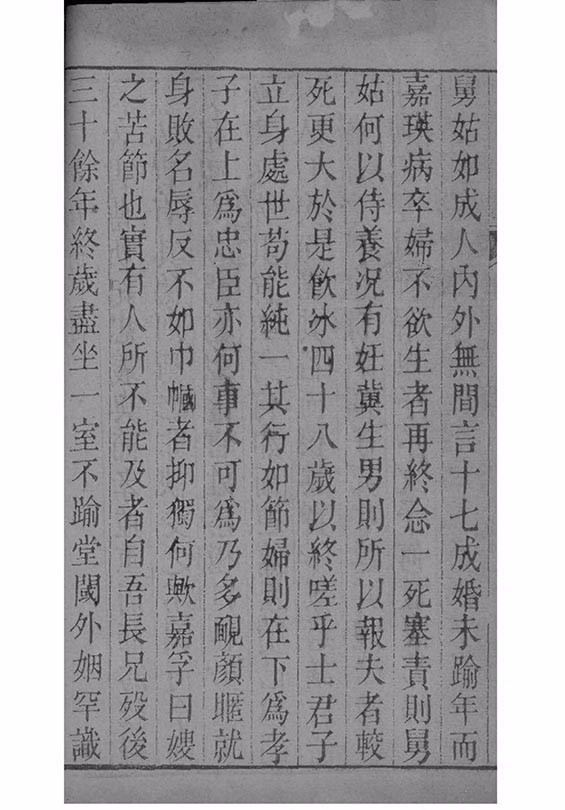 舅姑如成人內外無間言十七成婚未踰年而
嘉瑛病卒婦不欲生者再終念一死塞責則舅
姑何以侍養况有妊冀生男則所以報夫者較
死更大於是飲冰四十八歲以終嗟乎士君子
立身處世苟能純一其行如節婦則在下為孝
子在上爲忠臣亦何事不可爲乃多靦顔軀就
身敗名辱反不如巾幗者抑獨何歟嘉孚曰嫂
之苦節也實有人所不能及者自吾長兄歿後
三十餘年終歲盡坐一室不踰堂閾外姻罕識